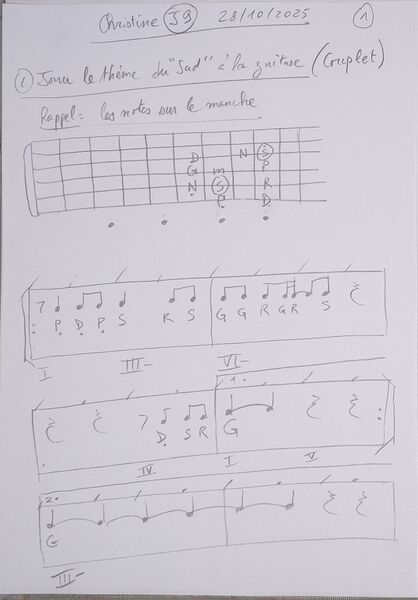 Christine J9 28/10/2025 1
1) Jouer le thème du "Sud" à la guitare (Couplet)
Rappel : les notes sur le manche
D N S
G m P
N S R
P D
7 P D P S R S G G R G R S
I III- VI-
7 D S R 1. G
IV I V
2.
G
III-